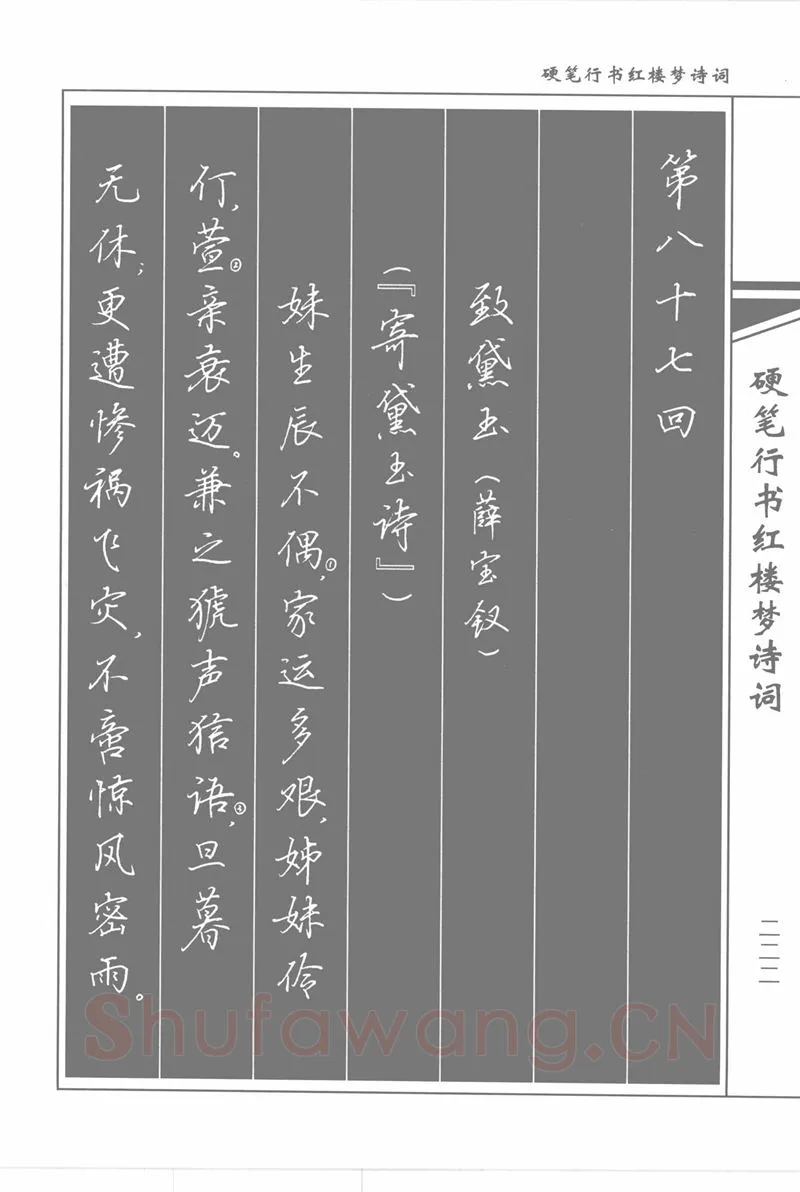 硬笔行书红楼梦诗词
硬笔行书红楼梦诗词
二二二
第八十七回
致黛玉(薛宝钗)
(『寄黛玉诗』)
妹生辰不偶①,家运多艰,姊妹伶
仃,萱②亲衰迈。兼之猇声狺语③,旦暮
无休;更遭惨祸飞灾,不啻惊风密雨。
Shufawang.CN